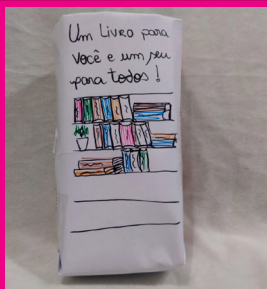 Um Livro para
você e um seu
para todos!